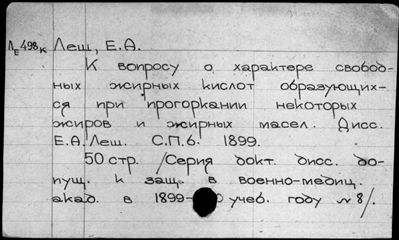 ЛЕ498к Лещ, Е.А.
К вопросу о характере свобод-
ных жирных кислот образующих-
ся при прогоркании некоторых
жиров и жирных масел. Дисс.
Е.А.Лещ. С.П.б. 1899.
50 стр. /Серия докт. дисс. до-
пущ. к защ. в военно-медиц.
акад. в 1899- 0 учеб. году №8/.